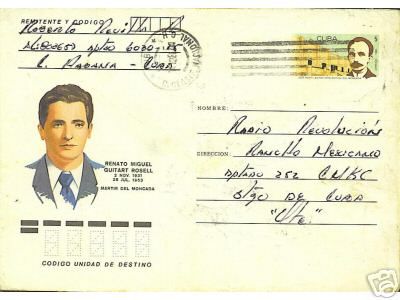 REMITENTE Y CODIGO
Roberto
C. Habana - Cuba
CUBA
5
NOMBRE:
Radio Revolución
DIRECCION:
Rancho Mexicano
Aptado 252 CMKC
Stgo DE CUBA
"Ote."
RENATO MIGUEL
GUITART ROSELL
2 NOV. 1931
26 JUL. 1953
MARTIR DEL MONCADA
CODIGO UNIDAD DE DESTINO
eBay